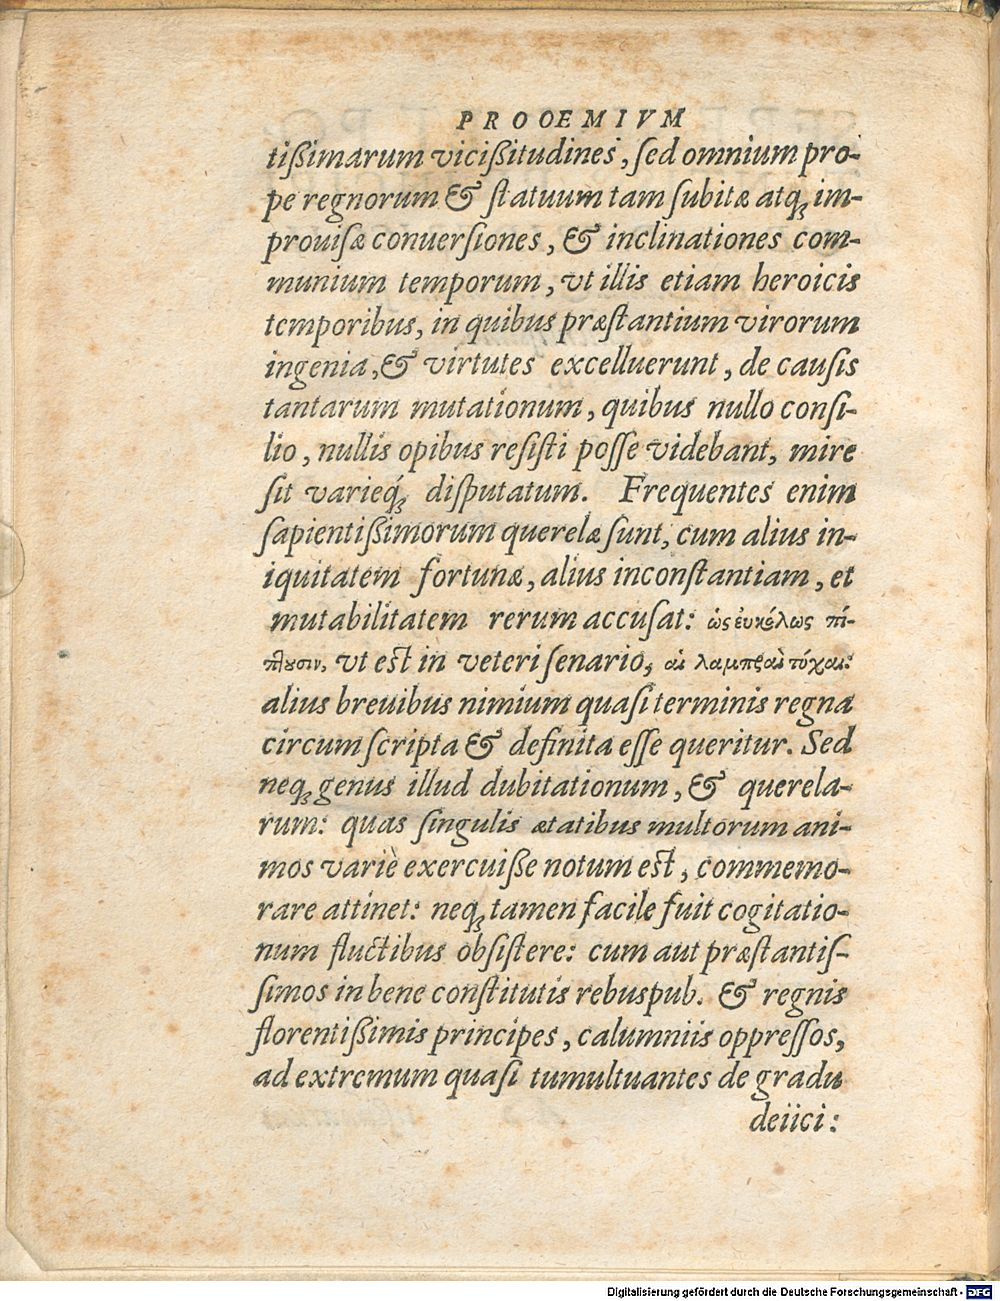 PROOEMIVM
tißimarum vicißitudines, ſed omnium pro-
pe regnorum & ſtatuum tam ſubitæ atq; im-
prouiſæ conuerſiones, & inclinationes com-
munium temporum, vt illis etiam heroicis
temporibus, in quibus præſtantium virorum
ingenia, & virtutes excelluerunt, de cauſis
tantarum mutationum, quibus nullo conſi-
lio, nullis opibus reſiſti poſſe videbant, mire
ſit varieq́; diſputatum. Frequentes enim
ſapientißimorum querelæ ſunt, cum alius in-
iquitatem fortunæ, alius inconſtantiam, et
mutabilitatem rerum accuſat: ὡς ἐυκόλως πί-
πτουσιν, vt eſt in veteri ſenario, αἱ λαμπραὶ τύχαι:
alius breuibus nimium quaſi terminis regna
circumſcripta & definita eſſe queritur. Sed
neq; genus illud dubitationum, & querela-
rum: quas ſingulis ætatibus multorum ani-
mos variè exercuiße notum eſt, commemo-
rare attinet: neq; tamen facile fuit cogitatio-
num fluctibus obſiſtere: cum aut præſtantiſ-
ſimos in bene conſtitutis rebuspub. & regnis
florentißimis principes, calumniis oppreſſos,
ad extremum quaſi tumultuantes de gradu
deiici:
Digitalisierung gefördert durch die Deutsche Forschungsgemeinschaft - DFG